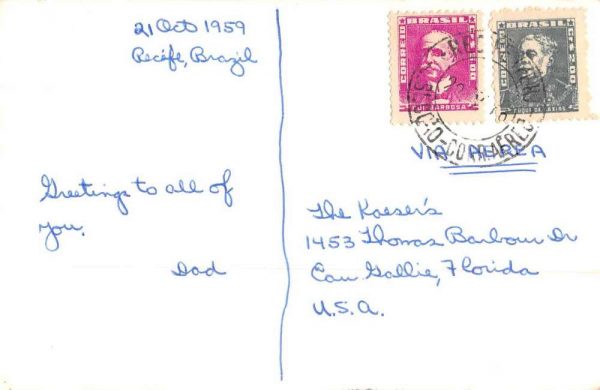 21 Oct 1959
Recife, Brazil
Greetings to all of
you.
Dad
BRASIL
CORREIO
RUI BARBOSA
BRASIL
CORREIO
CR$ 2,00
DUQUE DE CAXIAS
VIA AEREA
The Kaeser's
1453 Thomas Barbour Dr
Eau Gallie, Florida
U.S.A.